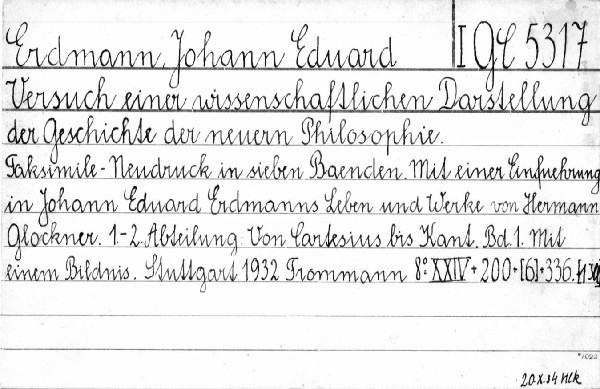 Erdmann, Johann Eduard I GC 5317
Versuch einer wissenschaftlichen Darstellung
der Geschichte der neuern Philosophie.
Faksimile-Neudruck in sieben Baenden. Mit einer Einfuehrung
in Johann Eduard Erdmanns Leben und Werke von Hermann
Glockner. 1-2. Abteilung: Von Cartesius bis Kant. Bd. 1. Mit
einem Bildnis. Stuttgart 1932 Frommann 8° XXIV + 200 + [6] + 336.